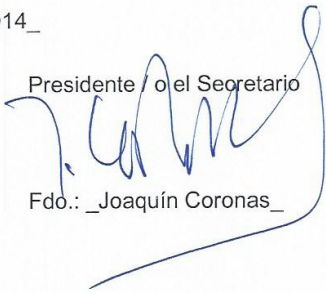 014_
Presidente / o el Secretario
Fdo.: _Joaquín Coronas_